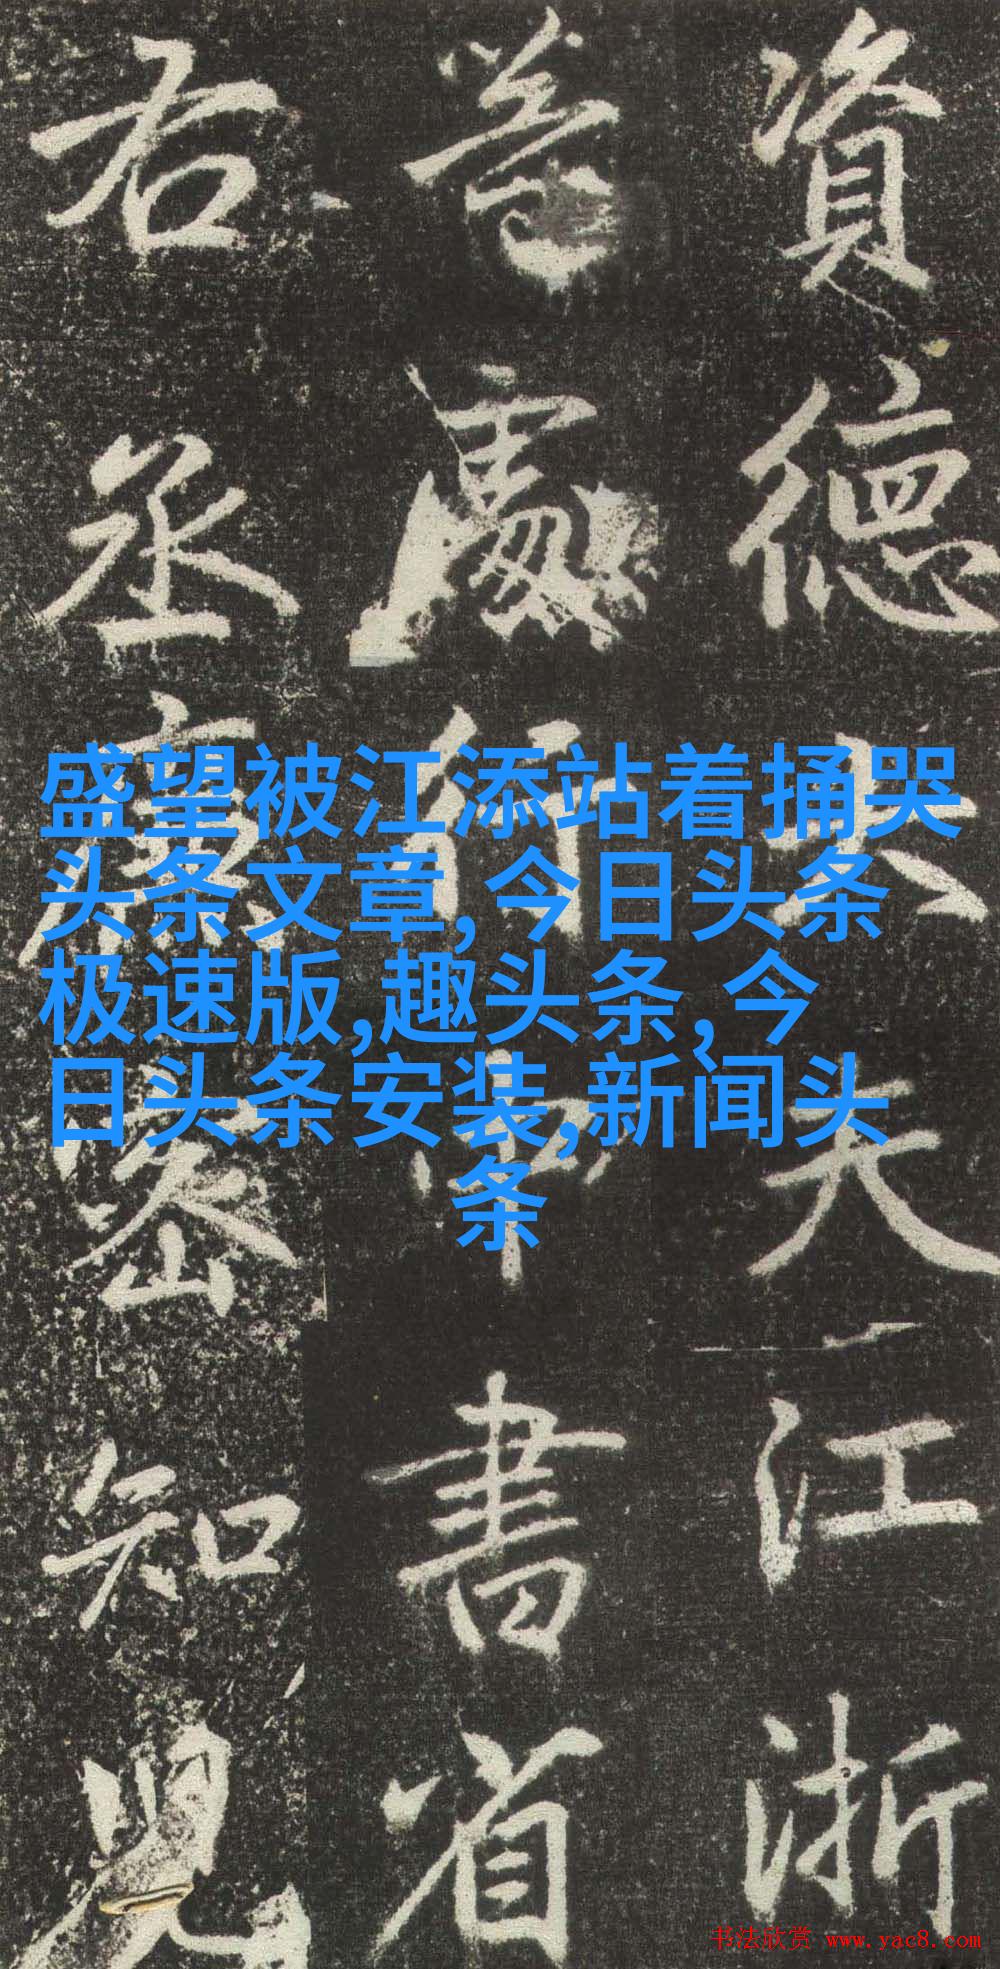 資德大夫江浙
等處行中書省
右丞廉密知兒
盛望被江添站着捅哭
头条文章,今日头条
极速版,趣头条,今
日头条安装,新闻头
条
书法欣赏 www.yac8.com